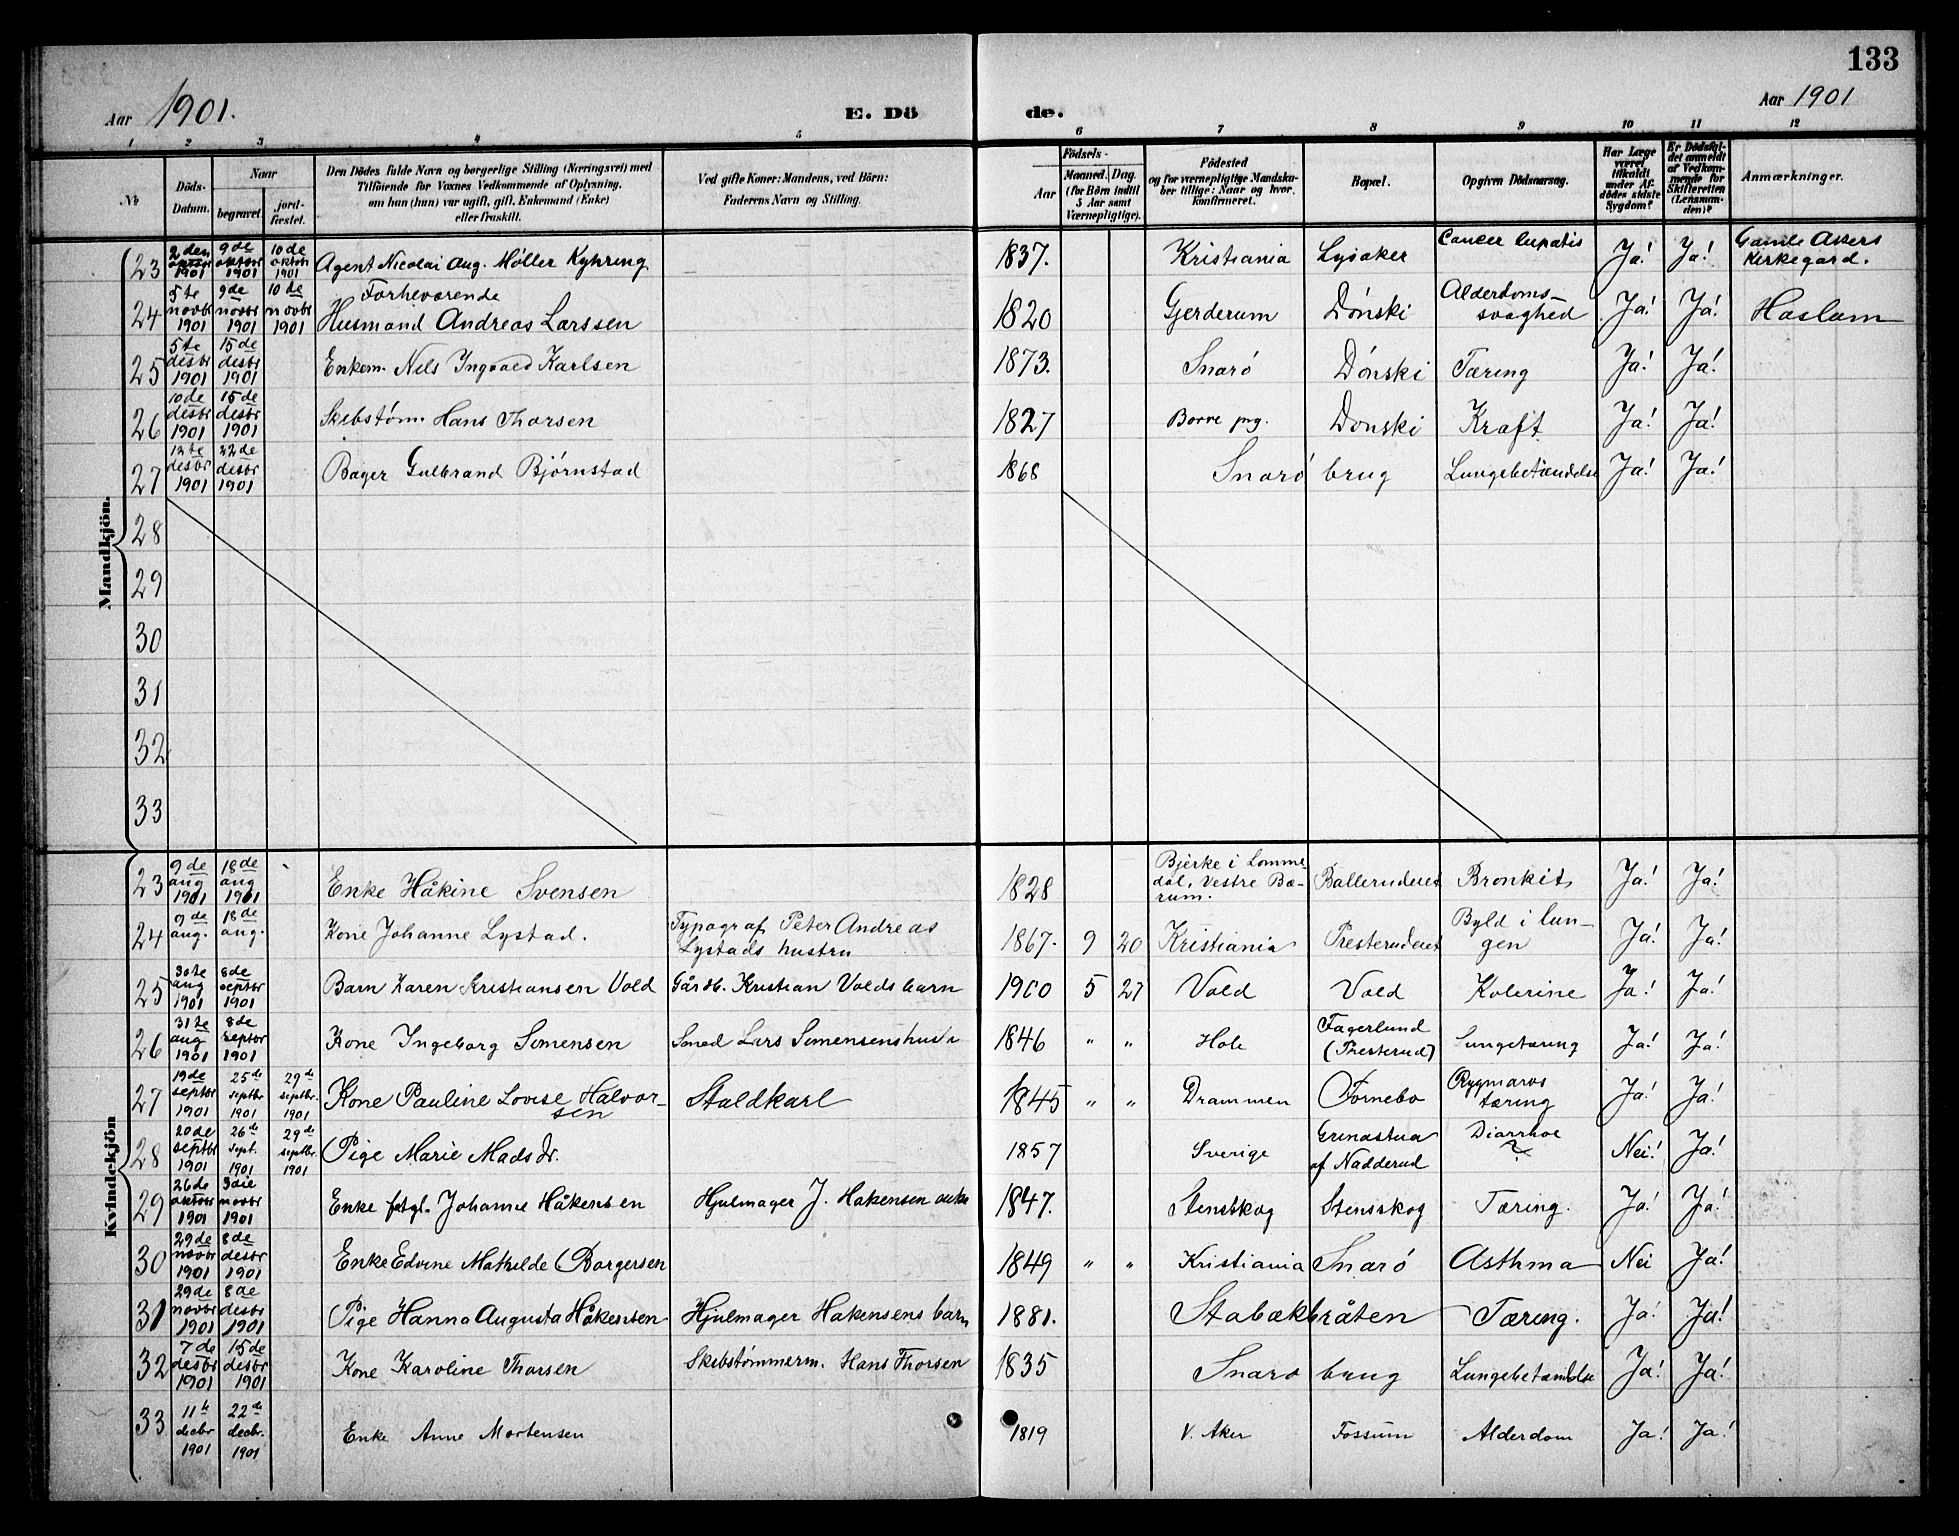 133
Aar 1901.
E. Dö de.
Aar 1901
1 2 3 4 5 6 7 8 9 10 11 12
№
Döds-Datum.
Naar
begravet.
jord-fæstet.
Den Dödes fulde Navn og borgerlige Stilling (Næringsvei) med
Tilföiende for Voxnes Vedkommende af Oplysning,
om han (hun) var ugift, gift, Enkemand (Enke)
eller fraskilt.
Ved gifte Koner: Mandens, ved Börn:
Faderens Navn og Stilling.
Födsels-
Aar
Maaned. Dag.
(for Börn indtil
5 Aar samt
Værnepligtige).
Födested
og for værnepligtige Mandska-
ber tillige: Naar og hvor.
Konfirmeret.
Bopæl.
Opgiven Dödsaarsag.
Har Læge
været
tilkaldt
under Af-
dödes sidste
Sygdom?
Er Dödsfal-
det anmeldt
af Vedkom-
mende for
Skifteretten
(Lensman-
den)?
Anmærkninger.
Mandkjön.
23 2den oktbr 1901 9de oktbr 1901 10de oktbr 1901 Agent Nicolai Aug. Möller Kyhring 1837. Kristiania Lysaker Cancer hepatis Ja! Ja! Gamle Akers Kirkegård.
24 5te novbr 1901 9de novbr 1901 10de novbr 1901 Forheværende Husmand Andreas Larssen 1820 Gjerderum Dönski Alderdoms-svaghed Ja! Ja! Haslum
25 5te desbr 1901 15de desbr 1901 Enkem. Nils Ingvald Karlsen 1873. Snarö Dönski Tæring Ja! Ja!
26 10de desbr 1901 15de desbr 1901 Skibstöm. Hans Thorsen 1827 Borre prg. Donski Kraft Ja! Ja!
27 12te desbr 1901 22de desbr 1901 Bager Gulbrand Björnstad 1868 Snarö brug Lungebetændelse Ja! Ja!
28
29
30
31
32
33
Kvindekjön
23 9de aug 1901 18de aug 1901 Enke Håkine Svensen 1828 Bjerke i Lomme dal, Vestre Bærum. Balleruderet Bronkit Ja! Ja!
24 9de aug. 18de aug. Kone Johanne Lystad. Typograf Peter Andreas Lystads hustru 1867. 9 20 Kristiania Presteruderet Byld i lun-gen Ja! Ja!
25 30te aug 1901 8de septbr 1901 Barn Karen Kristiansen Vold Gårdb. Kristian Volds barn 1900 5 27 Vold Vold Kolerine Ja! Ja!
26 31te aug 1901 8de septbr 1901 Kone Ingeborg Simensen Smed Lars Simensens 1846 " " Hole Fagerlund (Presterud) Lungetæring Ja! Ja!
27 19de septbr 1901 25de septbr 1901 29de septbr. 1901 Kone Pauline Lovise Halvor-sen Staldkarl 1845 " " Drammen Fornebo Rygmarvs tæring Ja! Ja!
28 20de septbr 1901 26de sept. 1901 29de septbr. 1901 Pige Marie Mads dr. 1857 Sverige Grinastua af Nadderud Diarrhoe ? Nei! Ja!
29 26de oktbr 1901 3die novbr 1901 Enke fatgl. Johanne Håkensen Hjulmager J. Hakensen enke 1847. Stensskog Stensskog Tæring. Ja! Ja!
30 29de novbr 1901 8de desbr 1901 Enke Edvine Mathilde Borgersen 1849 " " Kristiania Snarö Asthma Nei Ja!
31 29de novbr 1901 8de desbr 1901 Pige Hanna Augusta Håkensen Hjulmager Hakensens barn 1881. Stabækbråten Tæring. Ja! Ja!
32 7de desbr 1901 15de desbr 1901 Kone Karoline Thorsen Skibstömmerm. Hans Thorsen 1835 Snarö brug Lungebetændelse Ja! Ja!
33 11te decbr 1901 22de decbr. 1901 Enke Anne Mortensen 1819 V. Aker Fossum Alderdom Ja! Ja!